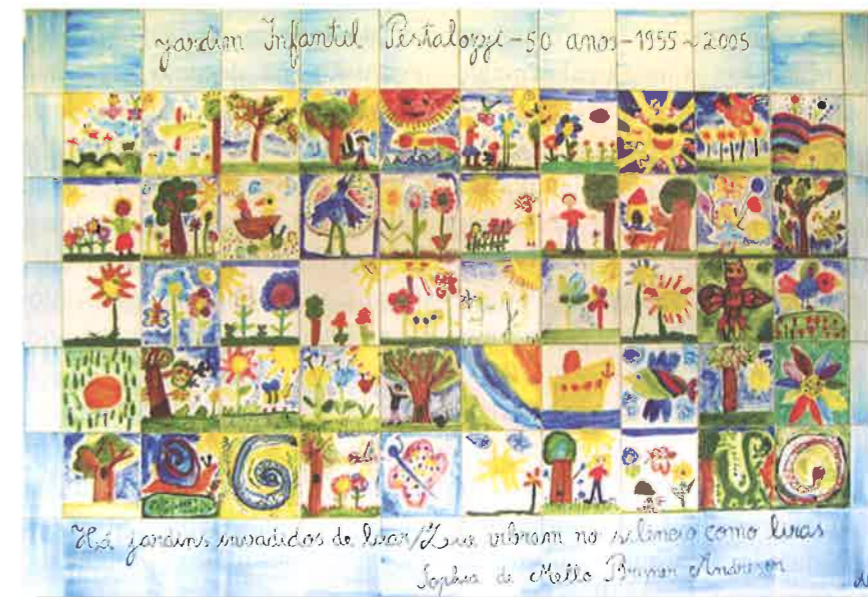 Jardim Infantil Pestalozzi - 50 anos - 1955 ~ 2005
Há jardins invadidos de luar/Que vibram no silêncio como liras
Sophia de Mello Breyner Andresen